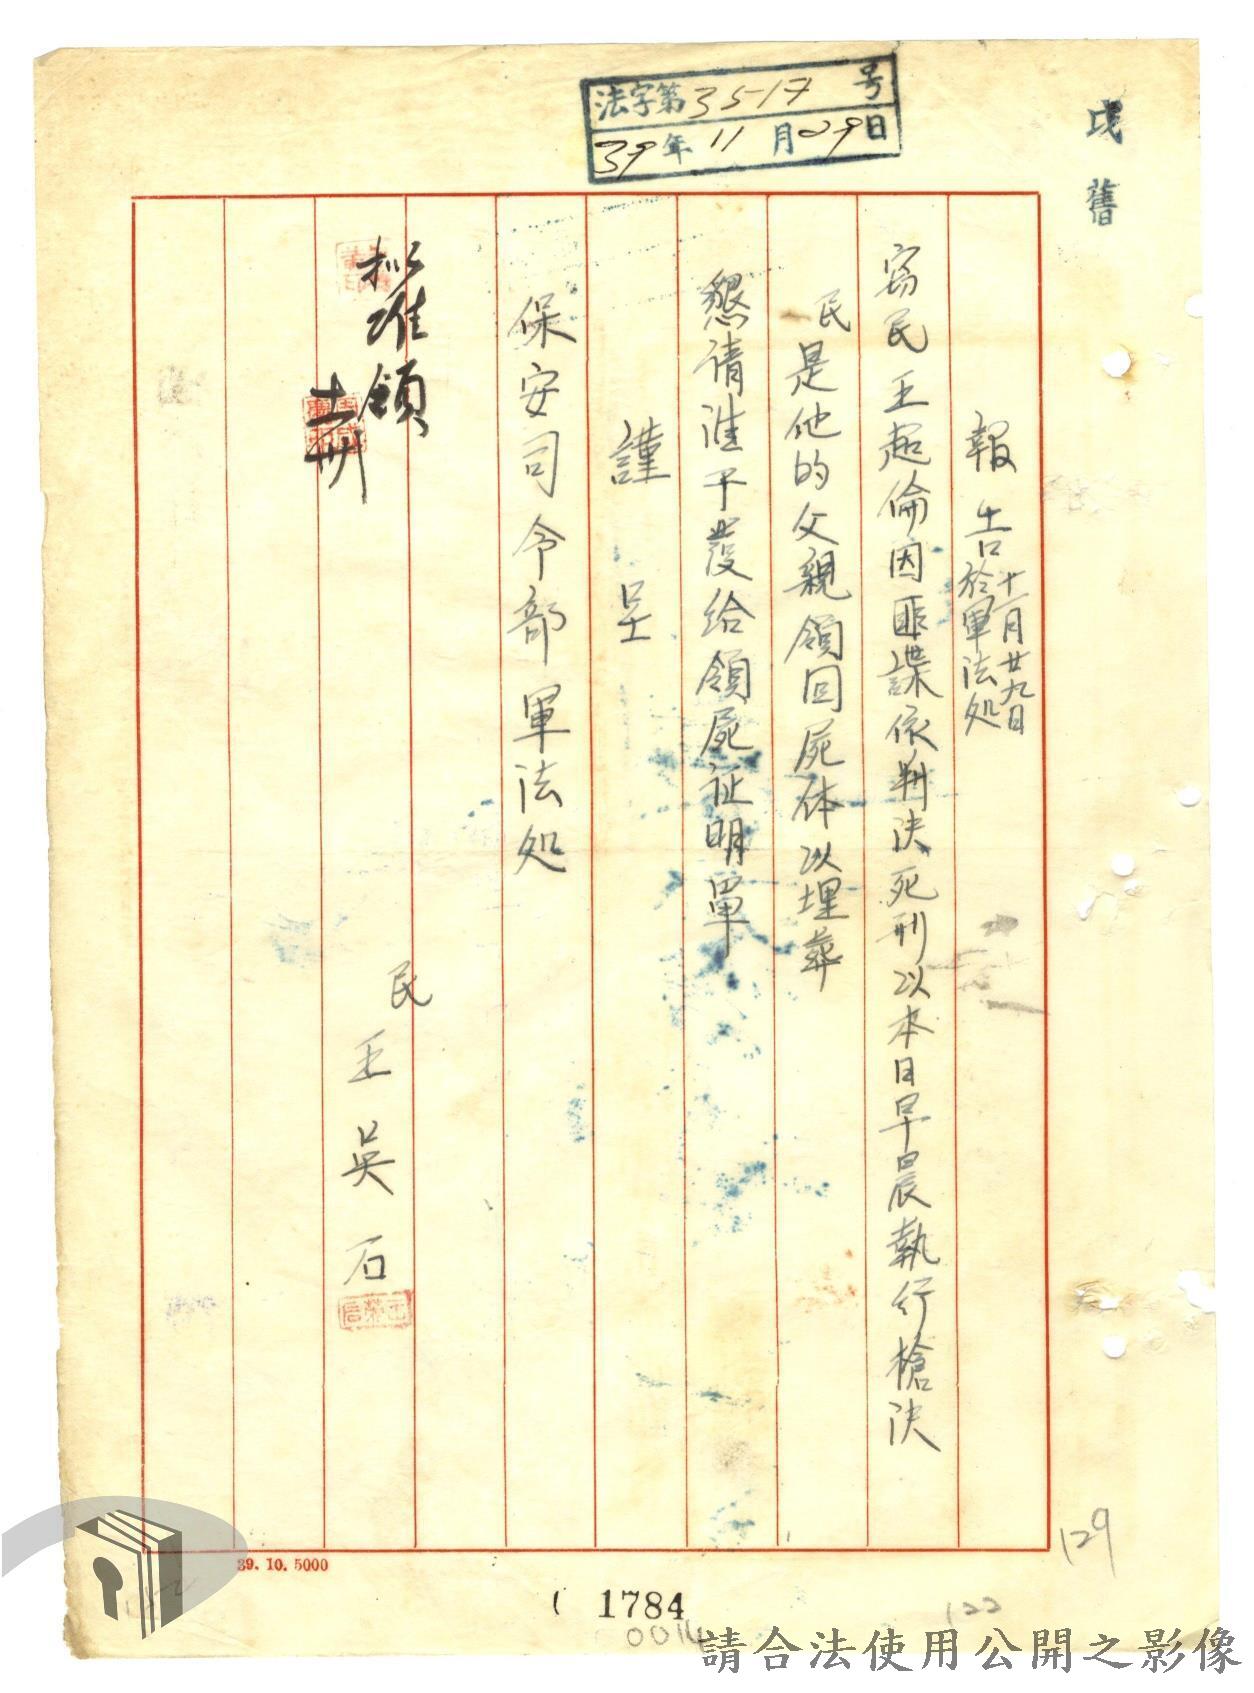 法字第3517号
39年11月29日
戊
舊
報告 十一月廿九日
於軍法処
窃民王超倫因匪諜依判決死刑以本日早晨執行槍決
民是他的父親領回屍体以埋葬
懇請准予發給領屍証明單
謹呈
保安司令部軍法処
民王英石
擬准領
39.10.5000
1784
0014
122
129
請合法使用公開之影像